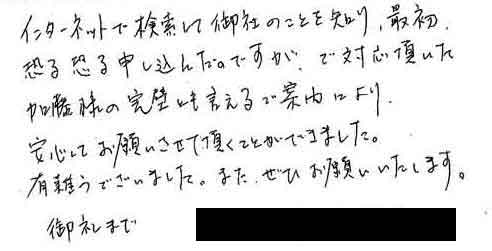 インターネットで検索して御社のことを知り、最初、
恐る恐る申し込んだのですが、ご対応頂いた
加藤様の完璧とも言えるご案内により、
安心してお願いさせて頂くことができました。
有難うございました。また、ぜひお願いいたします。
御礼まで